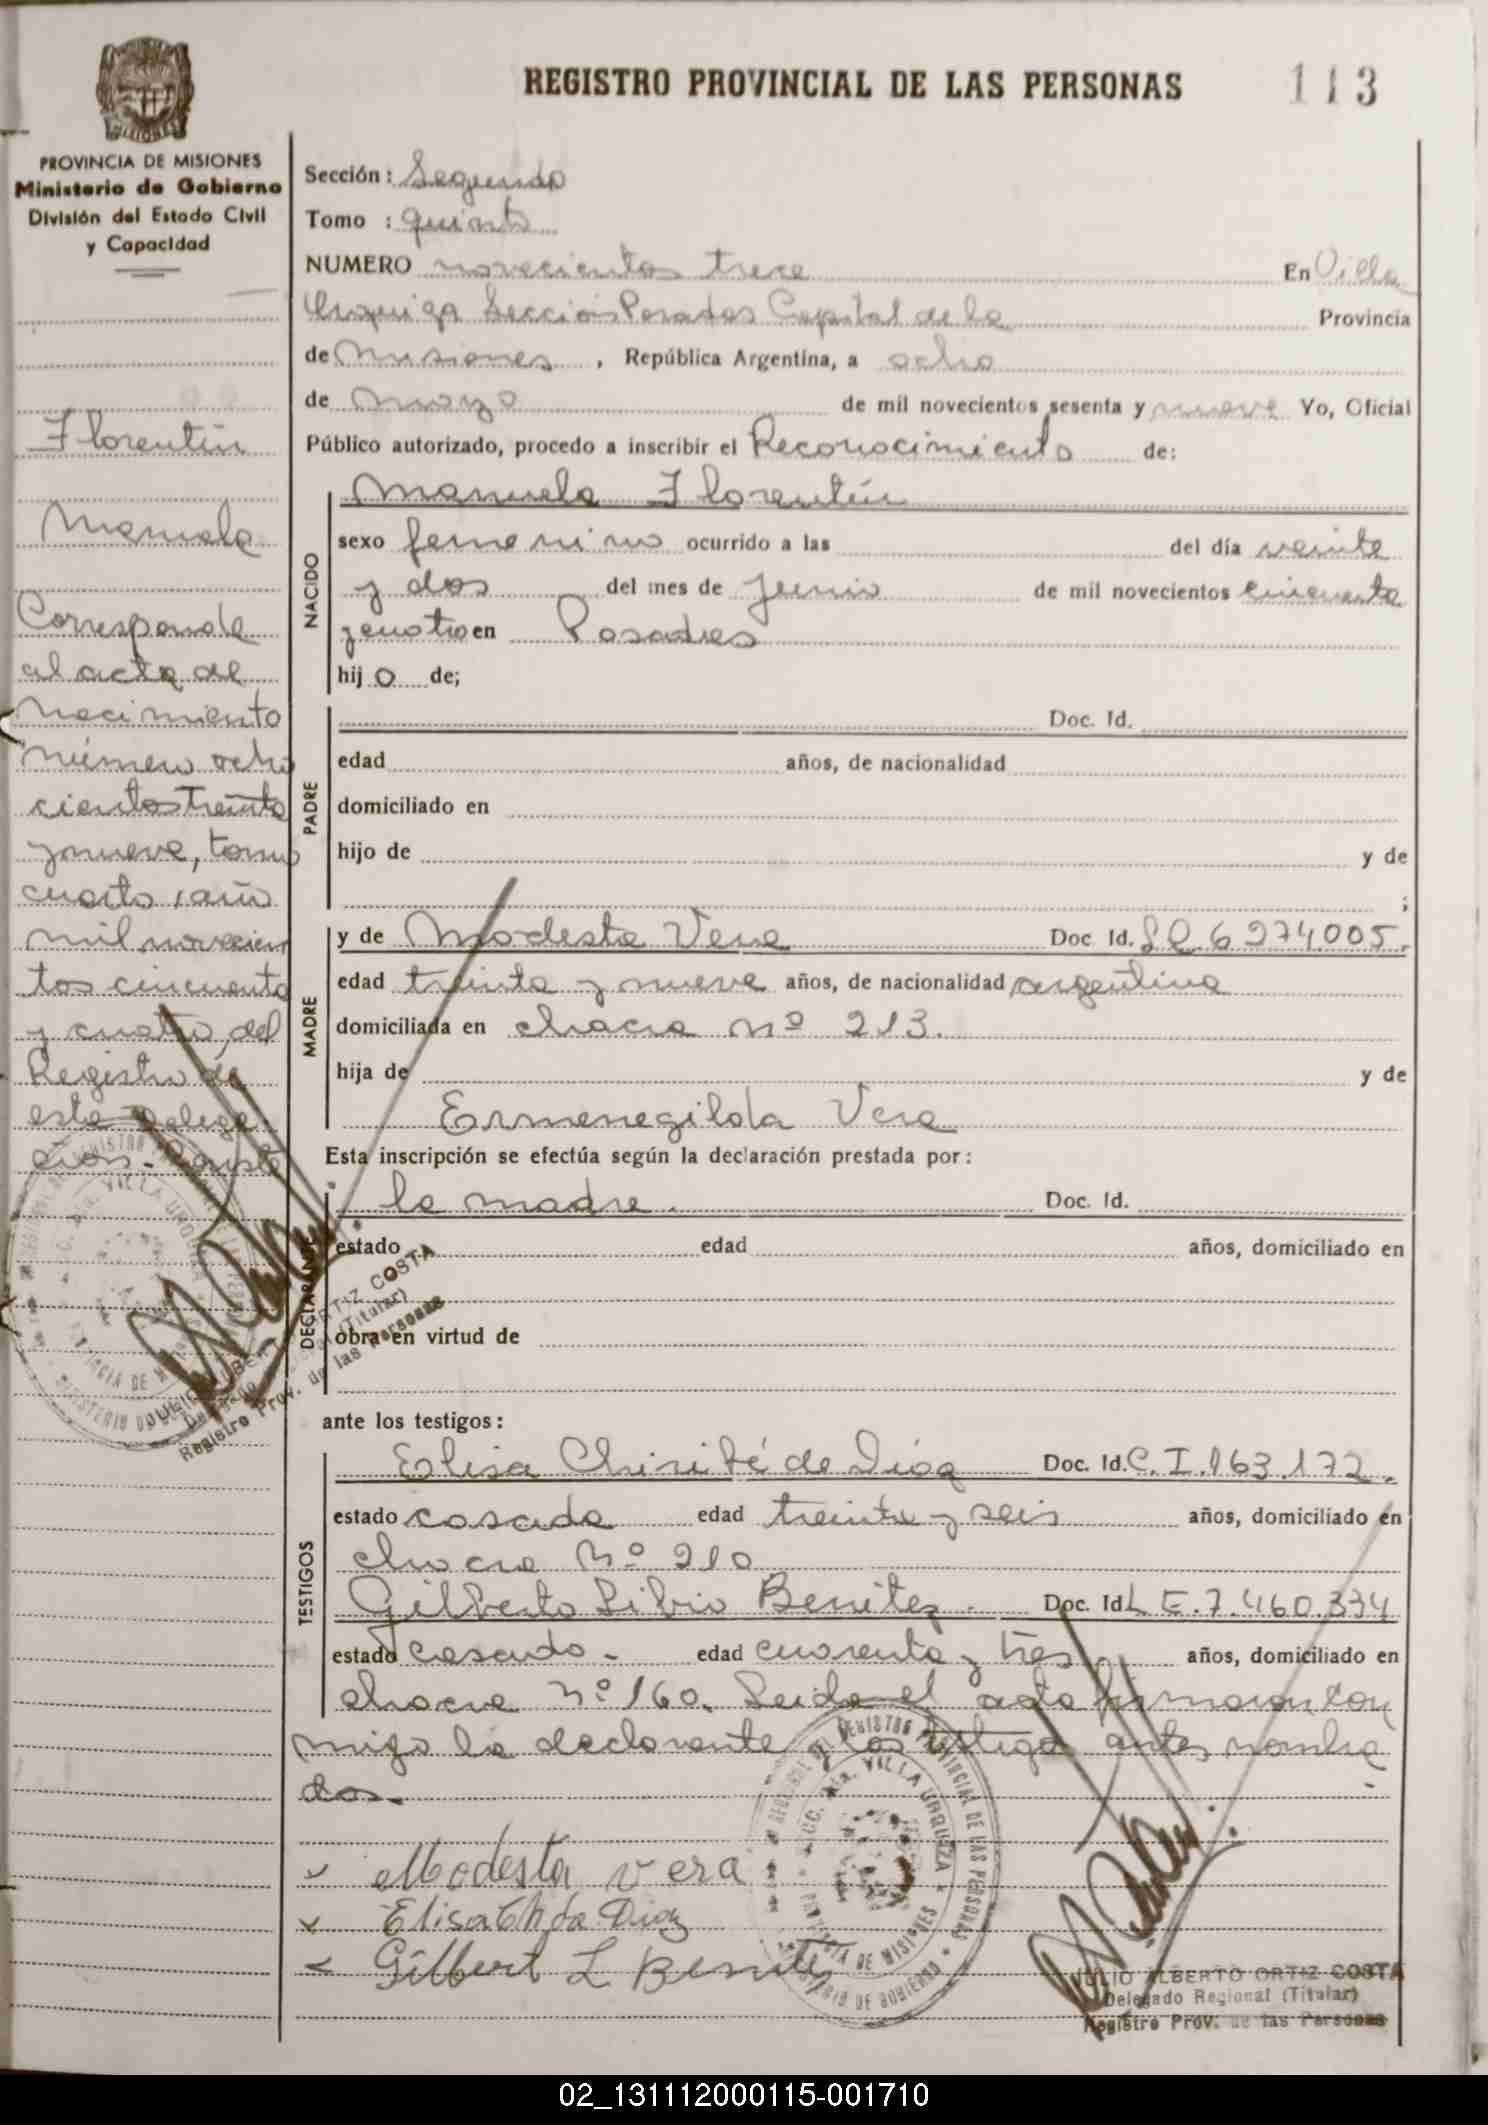 REGISTRO PROVINCIAL DE LAS PERSONAS
113
PROVINCIA DE MISIONES
Ministerio de Gobierno
División del Estado Civil
y Capacidad
Florentín
Manuela
Corresponde
al acta de
nacimiento
número ocho
cientos treinta
y nueve, tomo
cuarto, año
mil novecien
tos cincuenta
y cuatro, del
Registro de
esta Delega-
ción. Conste
Sección: Segunda
Tomo : quinto
NUMERO novecientos trece En Villa
Urquiza Sección Posadas Capital de la Provincia
de Misiones, República Argentina, a ocho
de mayo de mil novecientos sesenta y nueve Yo, Oficial
Público autorizado, procedo a inscribir el Reconocimiento de:
NACIDO
Manuela Florentín
sexo femenino ocurrido a las del día veinte
y dos del mes de Junio de mil novecientos cincuenta
y cuatro en Posadas
hij a de;
PADRE
Doc. Id.
edad años, de nacionalidad
domiciliado en
hijo de y de
;
MADRE
y de Modesta Vera Doc. Id. 6.274.005.
edad treinta y nueve años, de nacionalidad argentina
domiciliada en chacra nº 213.
hija de y de
Ermenegilda Vera
Esta inscripción se efectúa según la declaración prestada por:
DECLARANTE
la madre. Doc. Id.
estado edad años, domiciliado en
obra en virtud de
ante los testigos:
TESTIGOS
Elisa de Díaz Doc. Id. C.I. 163.172.
estado casada edad treinta y seis años, domiciliado en
chacra Nº 210
Gilberto Librio Benitez. Doc. Id L E. 7.460.334
estado casado. edad cuarenta y tres años, domiciliado en
chacra nº 160. Leida el acta firmaron con
migo la declarante y los testigos antes nombra
dos.-
Modesta vera
Elisa Ch de Diaz
Gilbert L Benitez
REGISTRO PROVINCIAL DE LAS PERSONAS
VILLA URQUIZA
PROVINCIA DE MISIONES
MINISTERIO DE GOBIERNO
JULIO ALBERTO ORTIZ COSTA
Delegado Regional (Titular)
Registro Prov. de las Personas
ORTIZ COSTA
(Titular)
Registro Prov. de las Personas
02_131112000115-001710